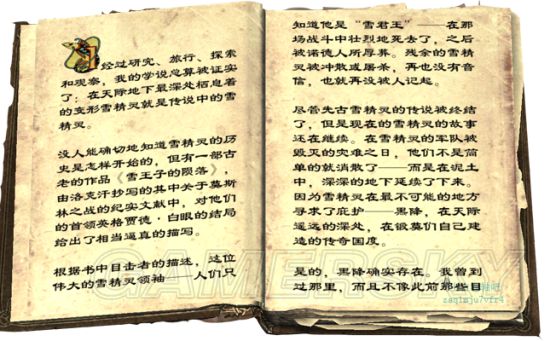 经过研究、旅行、探索
和观察，我的学说总算被证实
了：在天际地下最深处栖息着
的变形雪精灵就是传说中的雪
精灵。
没人能确切地知道雪精灵的历
史是怎样开始的，但有一部古
老的作品《雪王子的陨落》，
由洛克汗抄写的其中关于莫斯
林之战的纪实文献中，对他们
的首领英格贾德·白眼的结局
给出了相当逼真的描写。
根据书中目击者的描述，这位
伟大的雪精灵领袖——人们只
知道他是“雪君王”——在那
场战斗中壮烈地死去了，之后
被诺德人所厚葬。残余的雪精
灵被冲散或屠杀，再也没有音
信，也就再没被人记起。
尽管先古雪精灵的传说被终结
了，但是现在的雪精灵的故事
还在继续。在雪精灵的军队被
毁灭的灾难之日，他们不是简
单的就消散了——而是在泥土
中，深深的地下延续了下来。
因为雪精灵在最不可能的地方
寻求了庇护——黑降，在天际
遥远的深处，在锻莫们自己建
造的传奇国度。
是的，黑降确实存在。我曾到
过那里，而且不像此前那些目
GAMERSKY
zaq1mju7vfr4